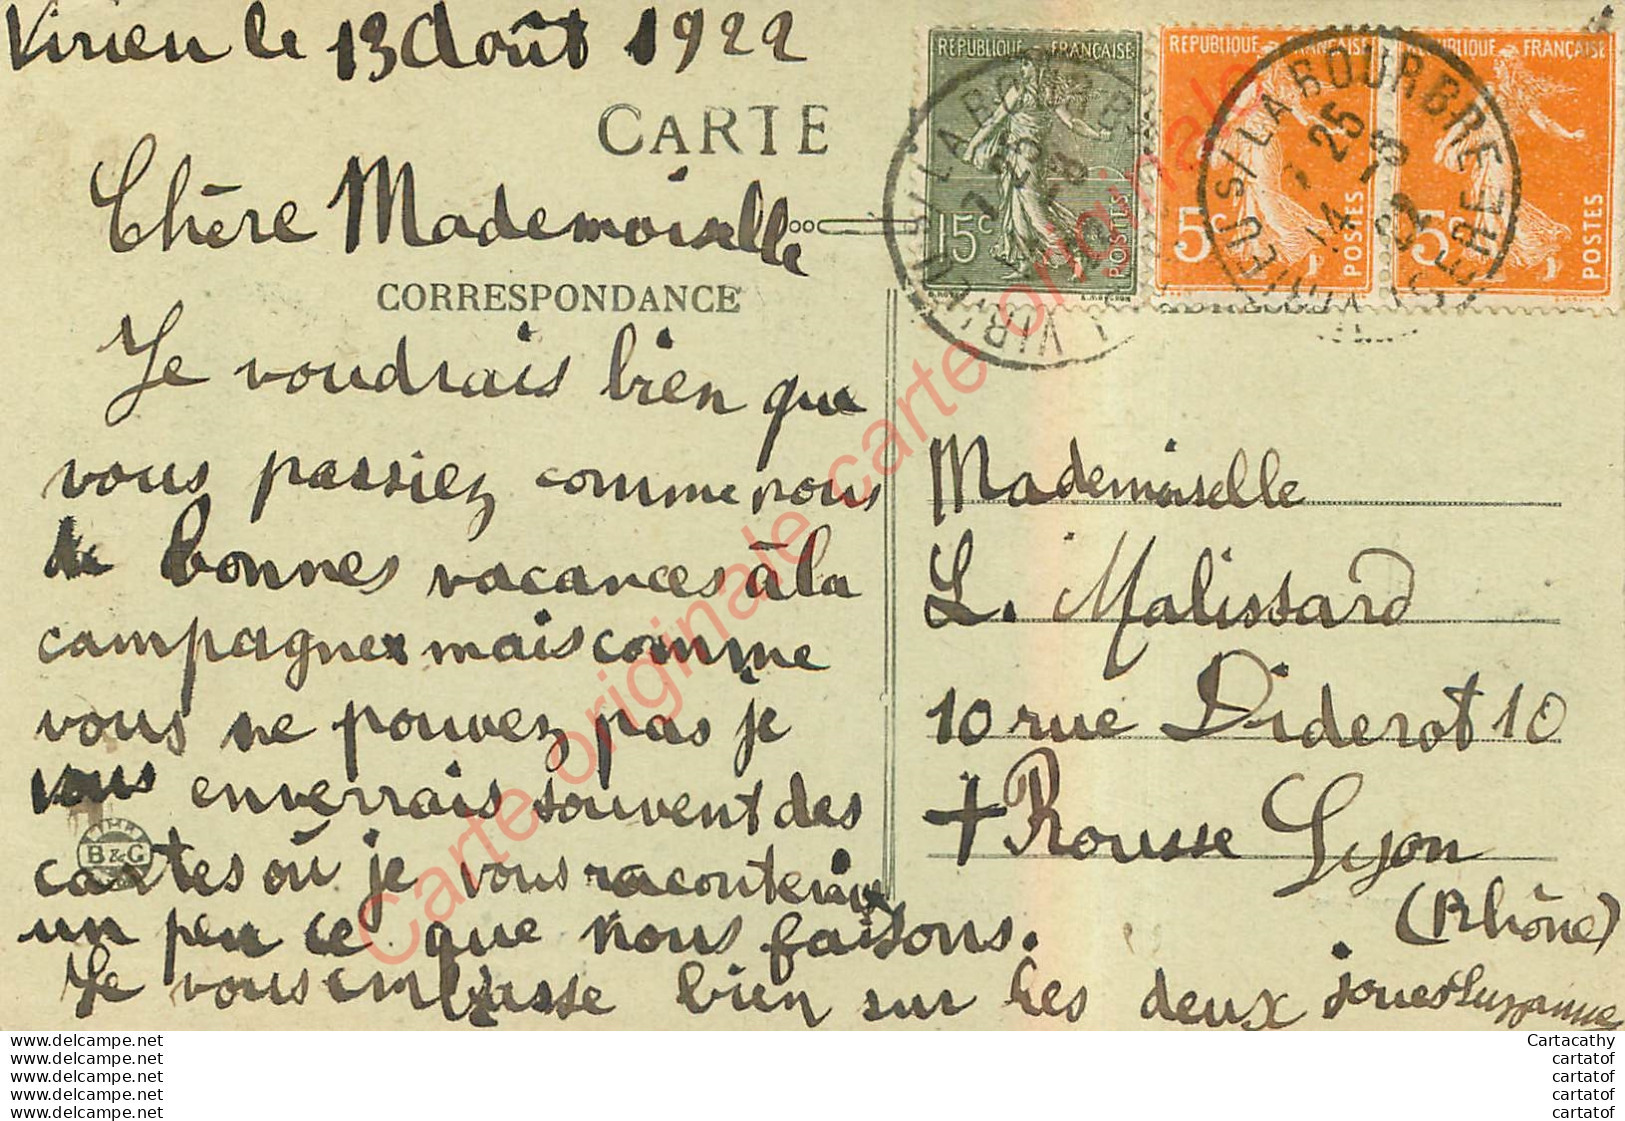 Virieu le 13 Août 1922
CARTE
Chère Mademoiselle
CORRESPONDANCE
Je voudrais bien que
vous passiez comme nous
de bonnes vacances à la
campagne mais comme
vous ne pouvez pas je
vous enverrais souvent des
cartes où je vous raconterais
un peu ce que nous faisons.
Je vous embrasse bien sur les deux joues Suzanne
B & G
REPUBLIQUE FRANÇAISE
15c
POSTES
REPUBLIQUE FRANÇAISE
5c
POSTES
REPUBLIQUE FRANÇAISE
5c
POSTES
VIRIEU S/ LA BOURBRE
7 25
14 - 8
22
ISERE
VIRIEU S/ LA BOURBRE
7 25
14 - 8
22
ISERE
Mademoiselle
L. Malissard
10 rue Diderot 10
+ Rousse Lyon
(Rhône)
Carte originale carte originale
www.delcampe.net
www.delcampe.net
www.delcampe.net
www.delcampe.net
www.delcampe.net
Cartacathy
cartatof
cartatof
cartatof
cartatof